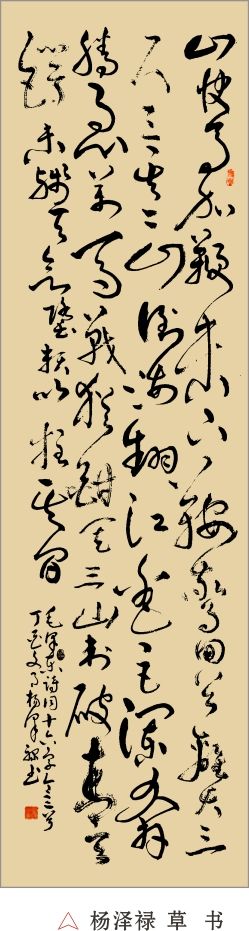 山快马加鞭未下鞍惊回首离天三
尺三其二山倒海翻江卷巨澜奔
腾急万马战犹酣其三山刺破青天
锷未残天欲堕赖以拄其间
毛泽东诗词十六字令三首
丁亥 杨泽禄书
杨泽禄 草 书